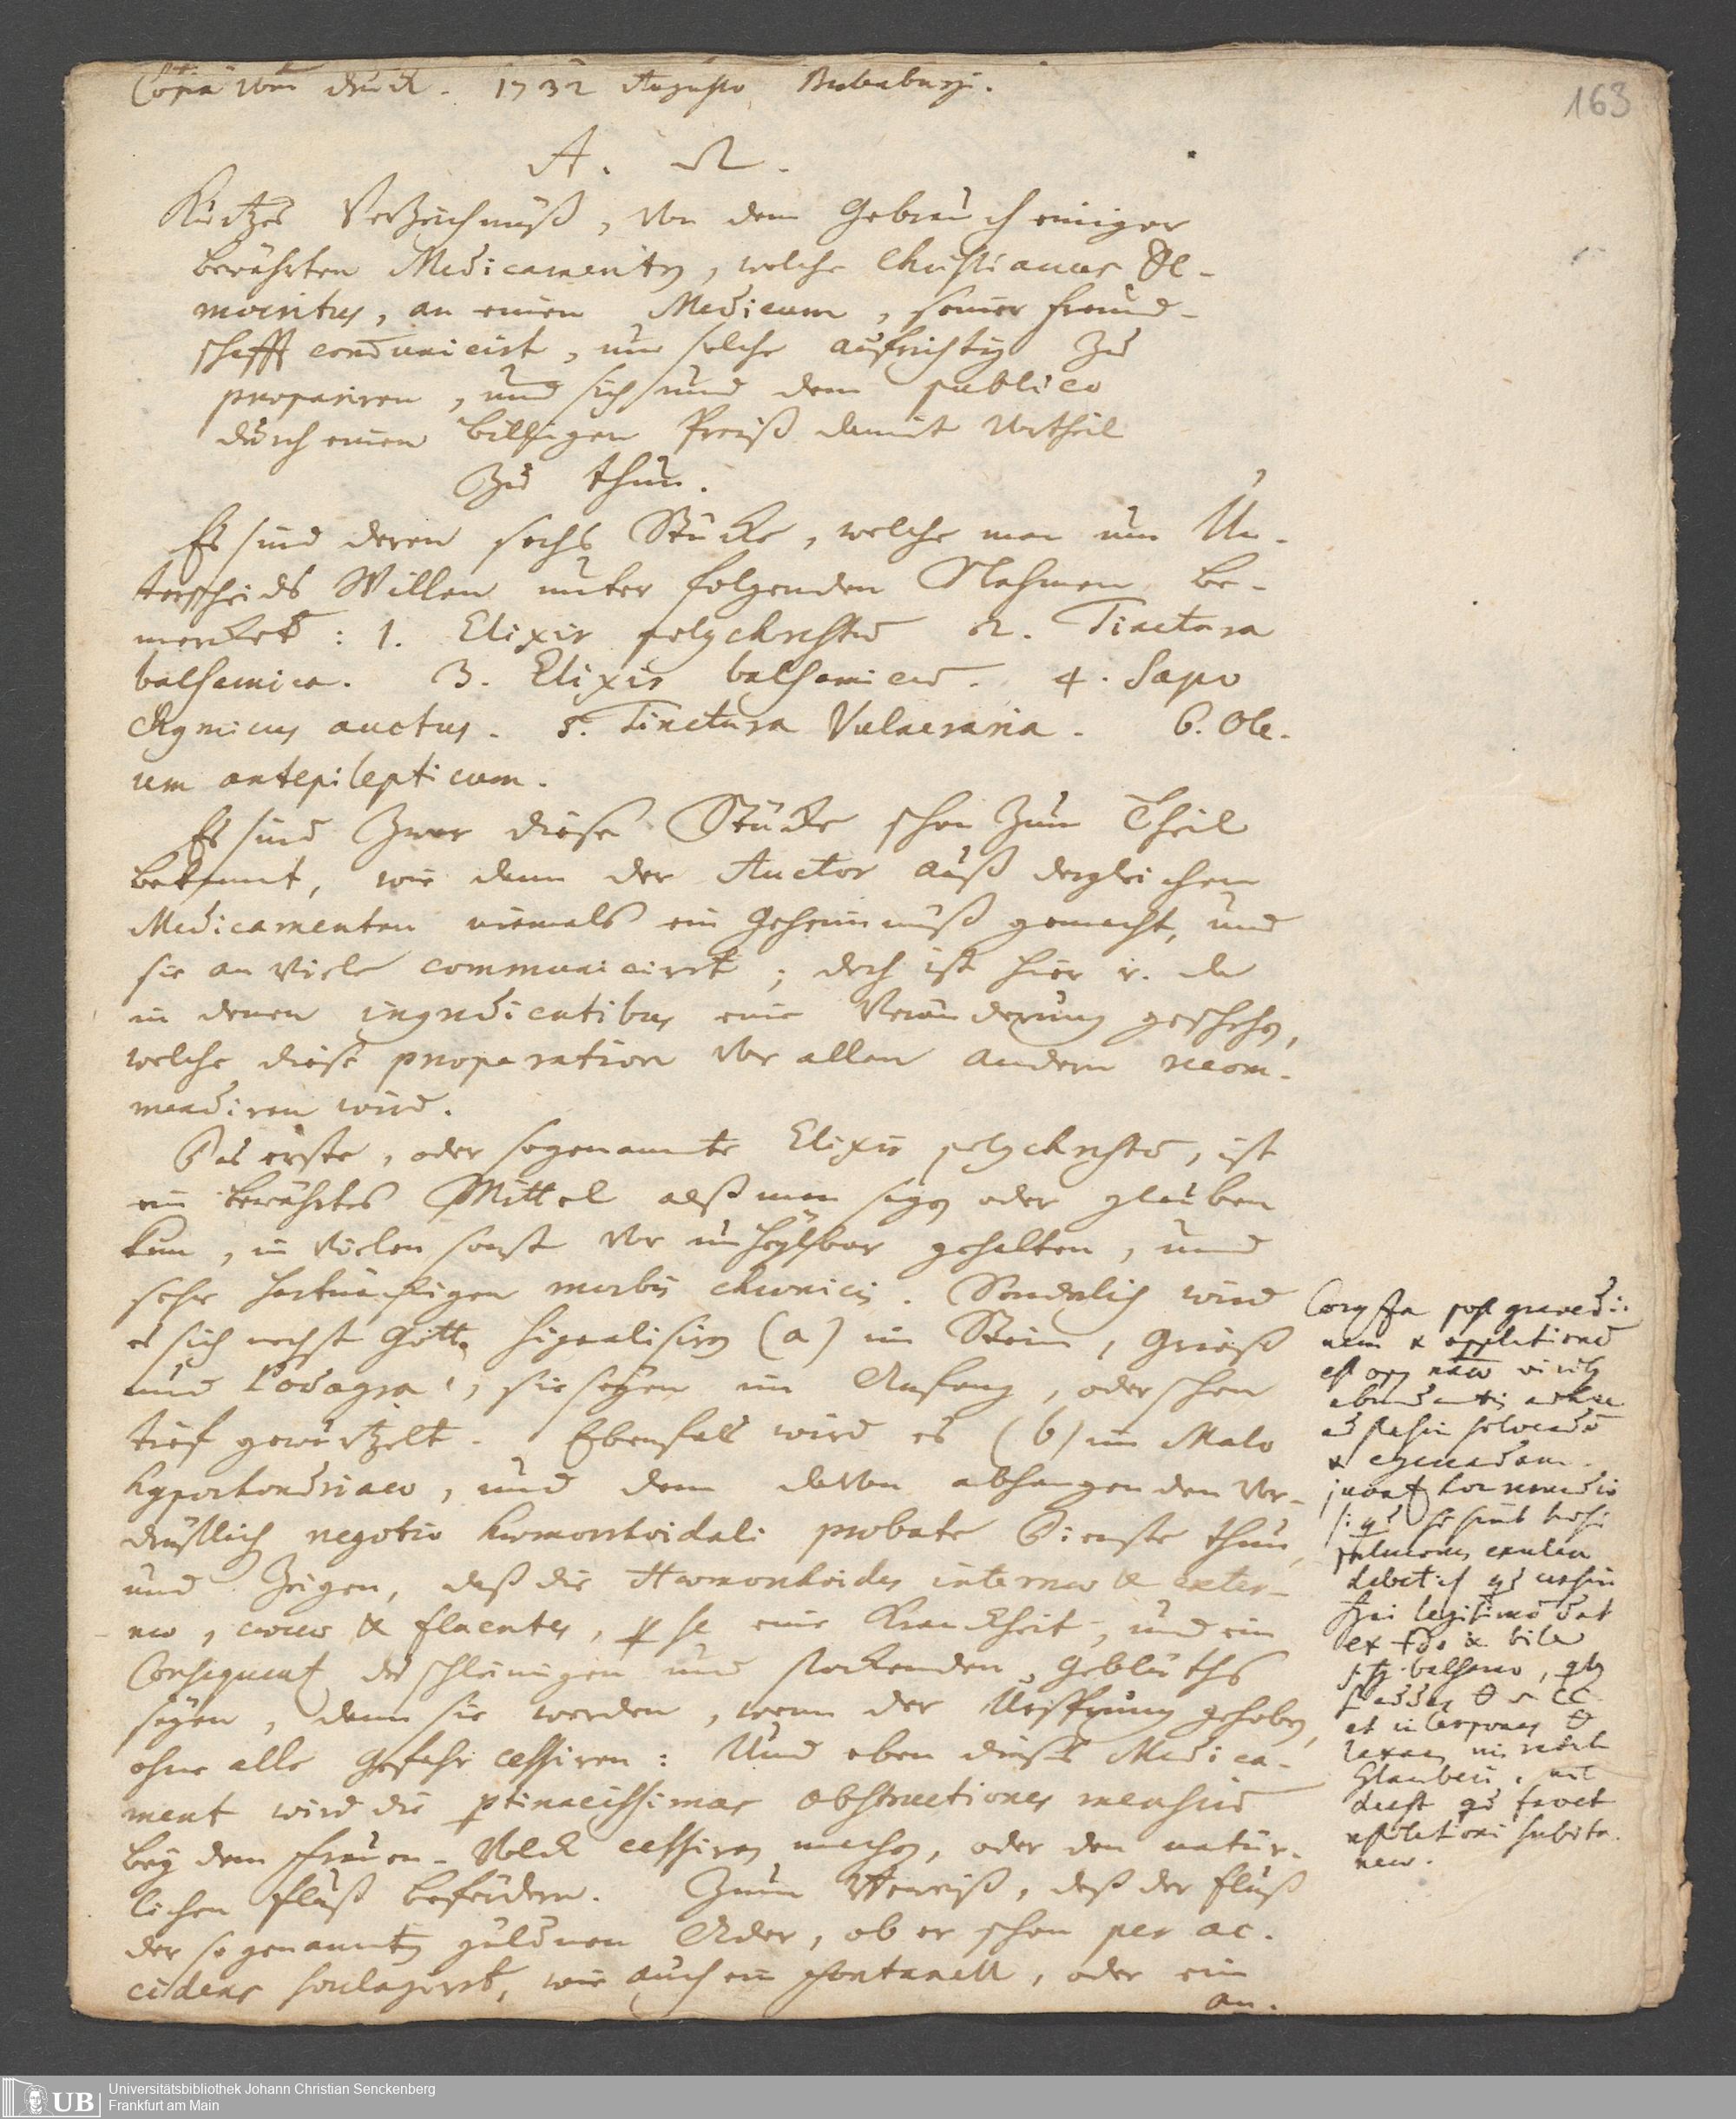 Copia vom druck. 1732 Augusto Budenburgi.
163
A. Ω.
Kurtzes Verzeichnüß, von dem Gebrauch einiger
bewährten Medicamenten, welche Christianus De-
mocritus, an einen Medicum, seiner Freund-
schafft com̄uniciret, um solche aufrichtig zu
præpariren, und sich und dem publico
durch einen billigen Preiß damit Vortheil
zu thun.
Es sind deren sechs Stücke, welche man um Un-
terscheids Willen unter folgenden Nahmen be-
mercket: 1. Elixir polychrestū 2. Tinctura
balsamica. 3. Elixir balsamicū. 4. Sapo
chymicus auctus. 5. Tinctura Vulneraria. 6. Ole-
um antepilepticum.
Es sind zwar diese Stücke schon zum Theil
bekannt, wie dann der Auctor auß dergleichen
Medicamenten niemals ein Geheimnüß gemacht, und
sie an viele communiciret; doch ist hier u. da
in denen ingredientibus eine Veränderung geschehen,
welche diese præparation vor allen andern recom-
mendiren wird.
Das erste, oder sogenannte Elixir polychrestū, ist
ein bewährtes Mittel alß man sagen oder glauben
kan, in vielen sonst vor unheylbar gehalten, und
sehr hartnäckigen morbis chronicis. Sonderlich wird
es sich nechst Gott signalisiren (a) im Stein, Grieß
und Podagra, sie seyen im Anfang, oder schon
tief gewurtzelt. Ebenfals wird es (b) im Malo
hypochondriaco, und dem davon abhangenden ver-
drüßlich negotio hæmorrhoidali probate Dienste thun,
und zeigen, daß die Hæmorrhoides internæ & exter-
næ, cæcæ & fluentes, per se eine Kranckheit, und ein
Consequent des schleimigen und stockenden Geblüths
seyen, dann sie werden, wenn der Ursprung gehoben,
ohne alle Gefahr cessiren: Und eben dieses Medica-
ment wird die ptinacissimas obstructiones mensiū
bey dem Frauen-Volck cessiren machen, oder den natür-
lichen Fluß befördern. Zum Beweiß, daß der Fluß
der sogenannten güldnen Ader, ob er schon per ac-
cidens soulagiret, wie auch ein Fontanell, oder ein
an-
Coryza post gravedi-
nem & oppletionē
& 
juvat hoc remedio
debet 
legitimo dat
ex & bile
balsamo,
et interpones
Glauberi,
Universitätsbibliothek Johann Christian Senckenberg
Frankfurt am Main
UB